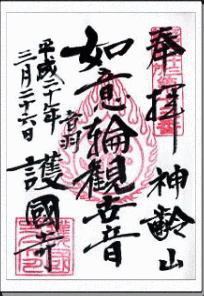 奉拝 神齢山
如意輪観世音
音羽 護國寺
平成二十年
三月二十六日